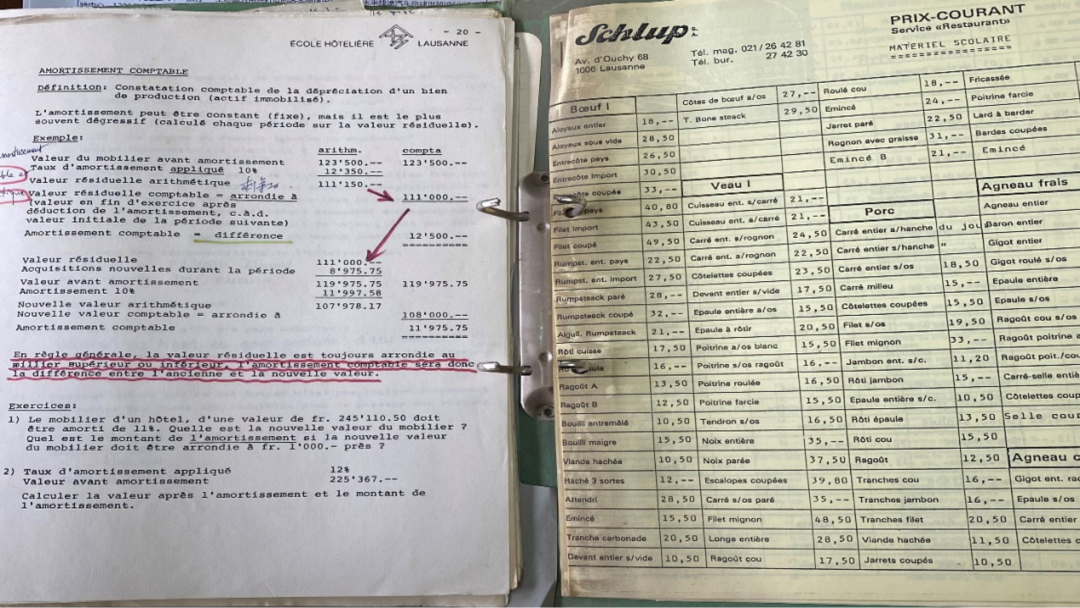 - 20 -
ÉCOLE HÔTELIÈRE LAUSANNE
AMORTISSEMENT COMPTABLE
Définition: Constatation comptable de la dépréciation d'un bien
de production (actif immobilisé).
L'amortissement peut être constant (fixe), mais il est le plus
souvent dégressif (calculé chaque période sur la valeur résiduelle).
Exemple:
arithm. compta
Valeur du mobilier avant amortissement 123'500.-- 123'500.--
Taux d'amortissement appliqué 10% 12'350.--
Valeur résiduelle arithmétique 111'150.--
Valeur résiduelle comptable = arrondie à 111'000.--
(valeur en fin d'exercice après
déduction de l'amortissement, c.à.d.
valeur initiale de la période suivante)
Amortissement comptable = différence 12'500.--
Valeur résiduelle 111'000.--
Acquisitions nouvelles durant la période 8'975.75
Valeur avant amortissement 119'975.75 119'975.75
Amortissement 10% 11'997.58
Nouvelle valeur arithmétique 107'978.17
Nouvelle valeur comptable = arrondie à 108'000.--
Amortissement comptable 11'975.75
En règle générale, la valeur résiduelle est toujours arrondie au
millier supérieur ou inférieur, l'amortissement comptable sera donc
la différence entre l'ancienne et la nouvelle valeur.
Exercices:
1) Le mobilier d'un hôtel, d'une valeur de fr. 245'110.50 doit
être amorti de 11%. Quelle est la nouvelle valeur du mobilier ?
Quel est le montant de l'amortissement si la nouvelle valeur
du mobilier doit être arrondie à fr. 1'000.- près ?
2) Taux d'amortissement appliqué 12%
Valeur avant amortissement 225'367.--
Calculer la valeur après l'amortissement et le montant de
l'amortissement.
Schlup
Av. d'Ouchy 68
1006 Lausanne
Tél. mag. 021/26 42 81
Tél. bur. 27 42 30
PRIX-COURANT
Service «Restaurant»
MATERIEL SCOLAIRE
Bœuf I
Aloyaux entier 18,--
Aloyaux sous vide 28,50
Entrecôte pays 26,50
Entrecôte import 30,50
coupée 33,--
pays 40,80
Filet import 43,50
Filet coupé 49,50
Rumpst. ent. pays 22,50
Rumpst. ent. import 27,50
Rumpsteack paré 28,--
Rumpsteack coupé 32,--
Aigull. Rumpsteack 21,--
Rôti cuisse 17,50
16,--
Ragoût A 13,50
Ragoût B 12,50
Bouilli entremêlé 10,50
Bouilli maigre 15,50
Viande hachée 10,50
Haché 3 sortes 12,--
Attendri 28,50
Emincé 15,50
Tranche carbonade 20,50
Devant entier s/vide 10,50
Côtes de bœuf s/os 27,--
T. Bone steack 29,50
Veau I
Cuisseau ent. s/carré 21,--
Cuisseau ent. a/carré 21,--
Carré ent. s/rognon 24,50
Carré ent. a/rognon 22,50
Côtelettes coupées 23,50
Devant entier s/vide 17,50
Epaule entière a/os 15,50
Epaule à rôtir 20,50
Poitrine a/os blanc 15,50
Poitrine s/os ragoût 16,--
Poitrine roulée 16,50
Poitrine farcie 15,50
Tendron s/os 16,50
Noix entière 35,--
Noix parée 37,50
Escalopes coupées 39,80
Carré s/os paré 35,--
Filet mignon 48,50
Longe entière 28,50
Ragoût cou 17,50
Roulé cou 18,--
Emincé 24,--
Jarret paré 22,50
Rognon avec graisse 31,--
Emincé B 21,--
Porc
Carré entier a/hanche du jou
Carré entier s/hanche "
Carré entier s/os 18,50
Carré milieu 15,--
Côtelettes coupées 15,50
Filet s/os 19,50
Filet mignon 33,--
Jambon ent. s/c. 11,20
Rôti jambon 15,--
Epaule entière s/c. 10,50
Rôti épaule 13,50
Rôti cou 15,50
Ragoût 12,50
Tranches cou 16,--
Tranches jambon 16,--
Tranches filet 20,50
Viande hachée 11,50
Jarrets coupés 10,50
Fricassée
Poitrine farcie
Lard à barder
Bardes coupées
Emincé
Agneau frais
Agneau entier
Baron entier
Gigot entier
Gigot roulé s/os
Epaule entière
Epaule s/os
Ragoût cou s/os
Ragoût poitrine a
Ragoût poit./cou
Carré-selle entiè
Côtelettes coup
Selle cou
Agneau c
Gigot ent. rac
Epaule s/os
Carré entier
Côtelettes c